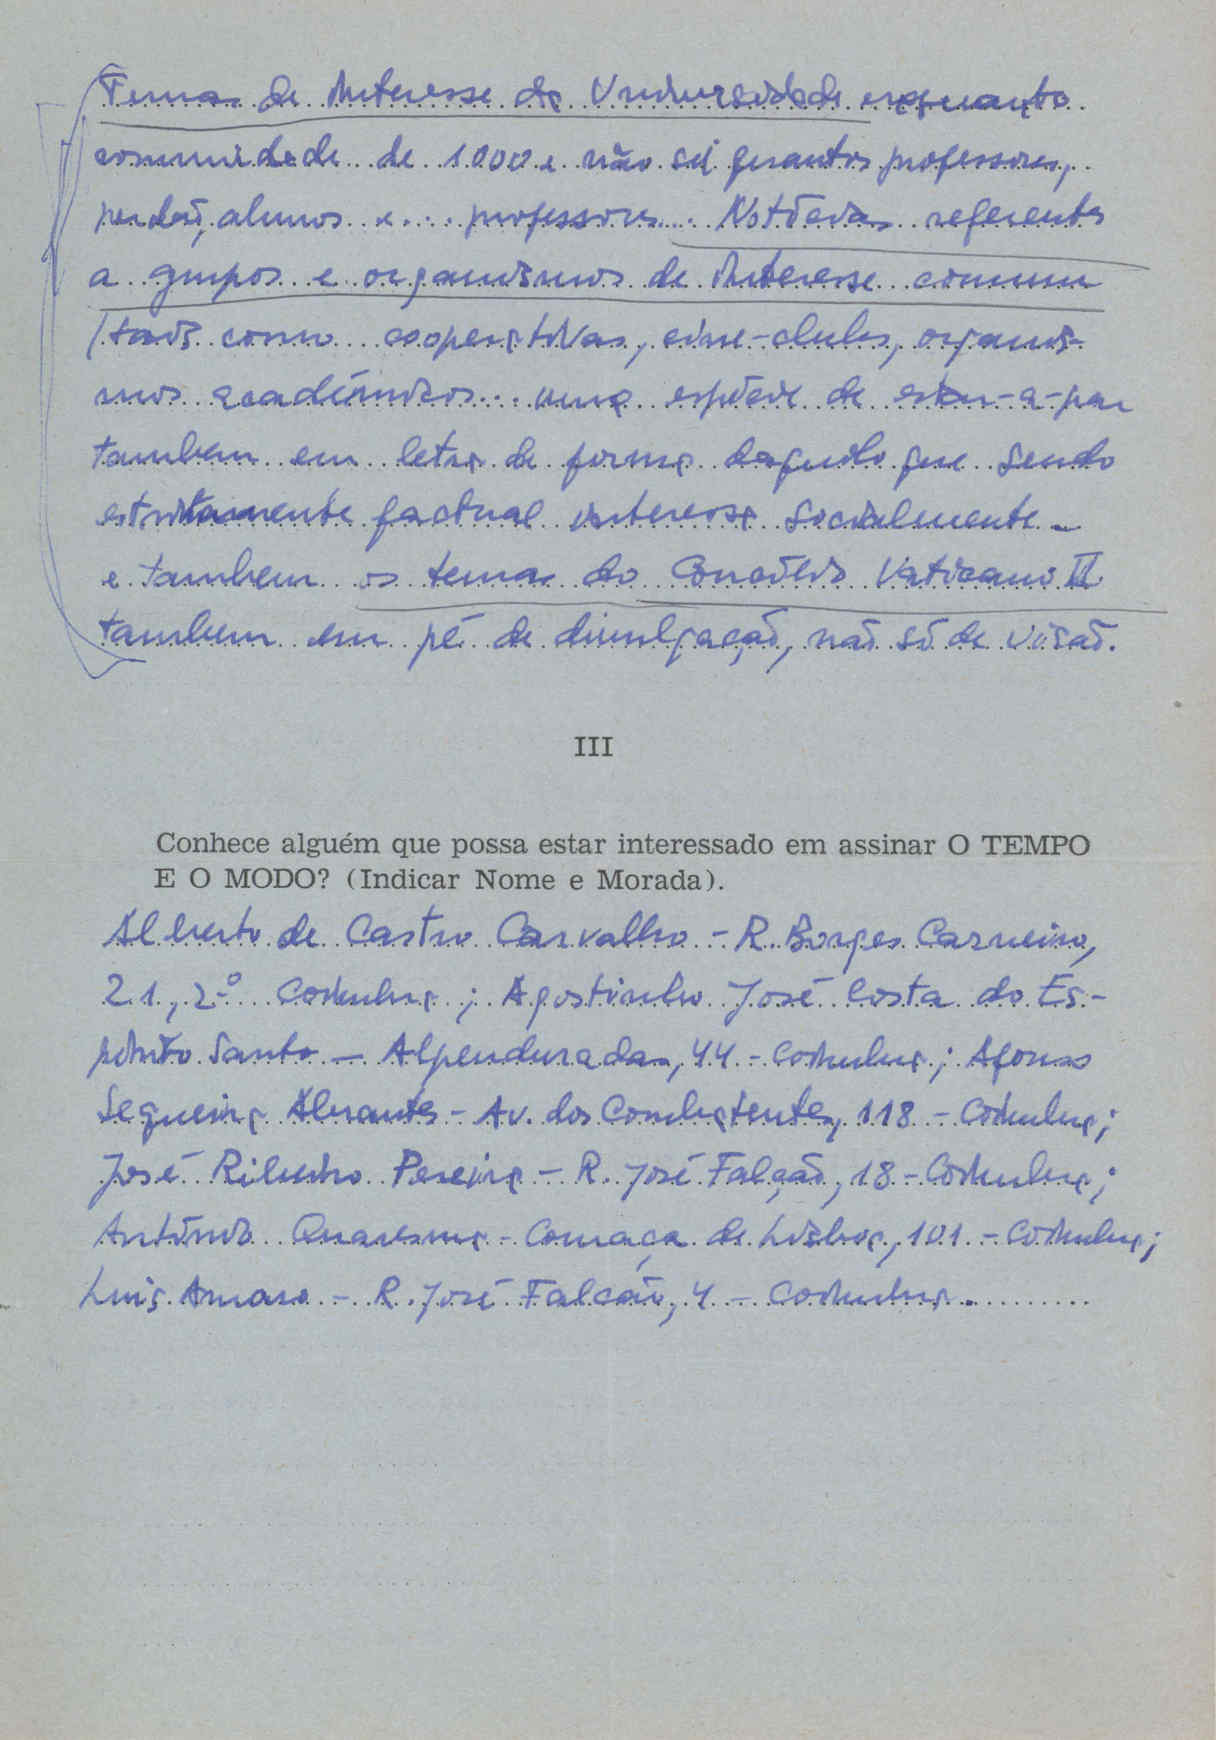 Temas de interesse da Universidade enquanto
comunidade de 1000 e não sei quantos professores,
perdão, alunos e... professores. Notícias referentes
a grupos e organismos de interesse comum
(tais como cooperativas, cine-clubes, organis-
mos académicos... uma espécie de estar-a-par
tambem em letra de forma daquilo que sendo
estritamente factual interesse socialmente -
e tambem os temas do Concílio Vaticano II
tambem em pé de divulgação, não só de visão.
III
Conhece alguém que possa estar interessado em assinar O TEMPO
E O MODO? (Indicar Nome e Morada).
Alberto de Castro Carvalho - R. Borges Carneiro,
21, 2º Coimbra; Agostinho José Costa do Es-
pírito Santo - Alpenduradas, 44 - Coimbra; Afonso
Sequeira Abrantes - Av. dos Combatentes, 118 - Coimbra;
José Ribeiro Pereira - R. José Falcão, 18 - Coimbra;
António Quaresma - Couraça de Lisboa, 101 - Coimbra;
Luis Amaro - R. José Falcão, 4 - Coimbra.